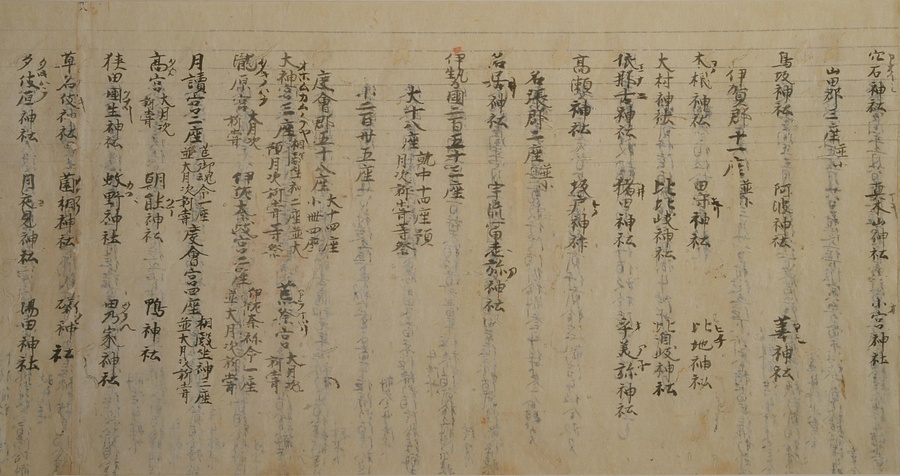 穴石神社 真木山神社 小宮神社
山田郡三座並小
鳥坂神社 阿波神社 葦神社
伊賀郡十一座並小
木根神社 田守神社 比地神社
大村神社 比比岐神社 比自岐神社
依那古神社 猪田神社 乎美祢神社
高瀬神社 坂戸神社
名張郡二座並小
名居神社 宇流冨志祢神社
伊勢國二百五十三座
大十八座 就中十四座預月次新甞等祭
小二百卅五座
度會郡五十八座 大十四座 小卌四座
大神宮三座 相殿坐神二座並大預月次新甞等祭 荒祭宮 大月次新甞
瀧原宮 大月次新甞 伊佐奈岐宮二座 伊佐奈弥命一座並大月次新甞
月讀宮二座 荒御魂命一座並大月次新甞 度會宮四座 相殿坐神三座並大月次新甞
高宮 大月次新甞 朝熊神社 鴨神社
狭田國生神社 蚊野神社 田乃家神社
草名伎神社 薗相神社 礒神社
多伎原神社 月夜見神社 湯田神社